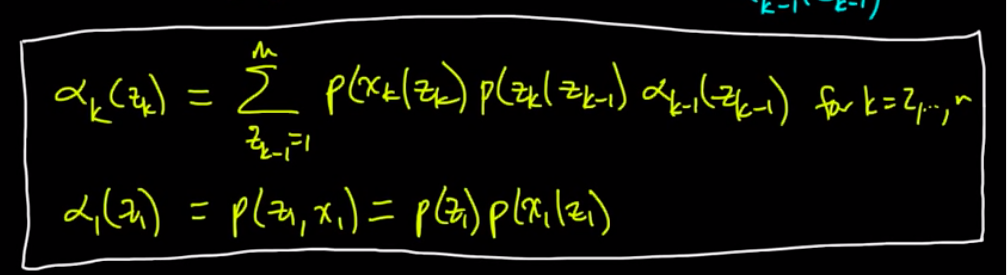 α_k(z_k) = Σ_{z_{k-1}=1}^{m} p(x_k|z_k) p(z_k|z_{k-1}) α_{k-1}(z_{k-1}) for k=2,...,n
α_1(z_1) = p(z_1, x_1) = p(z_1) p(x_1|z_1)